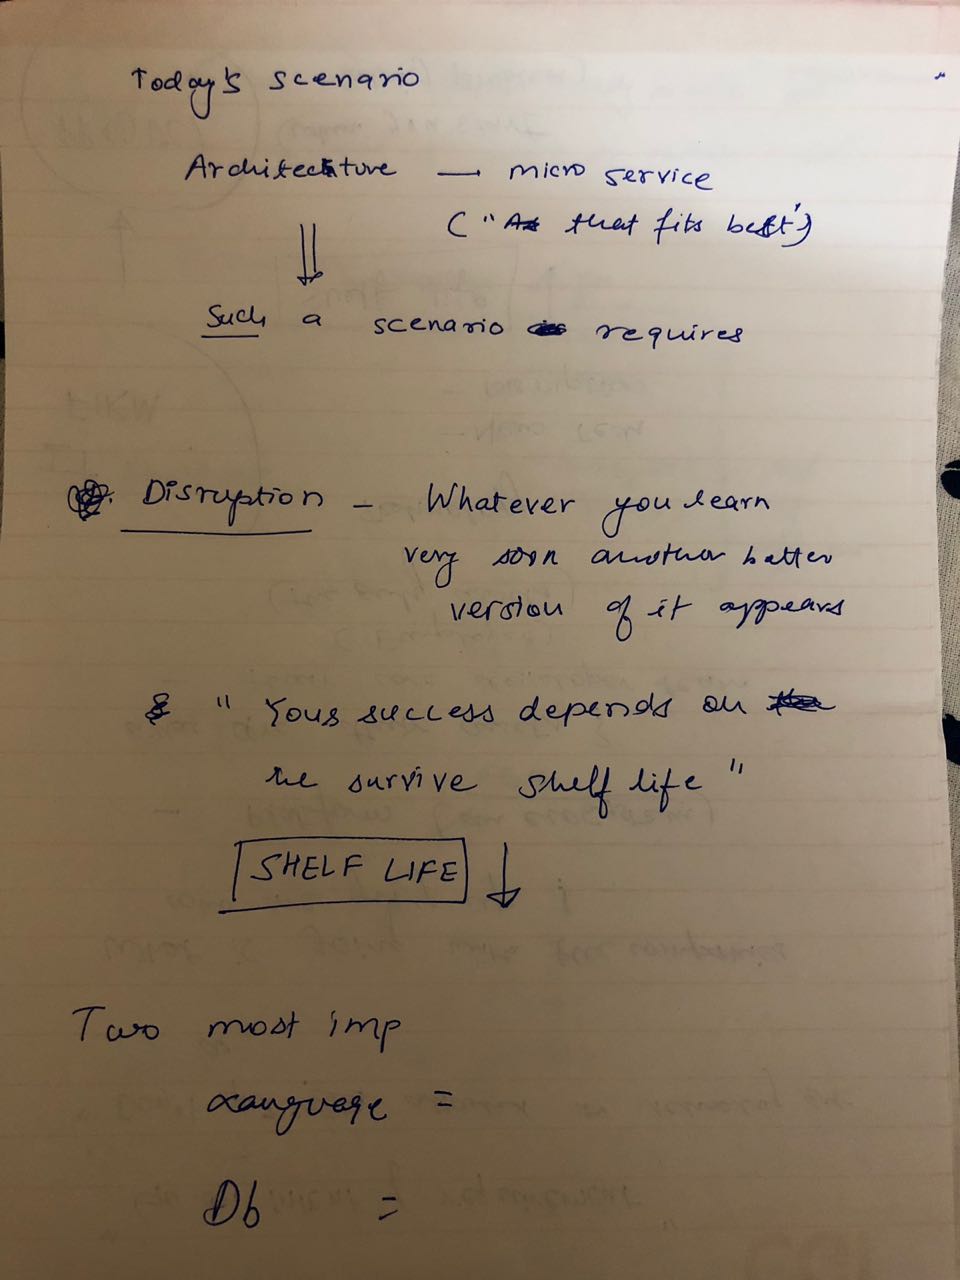 Today's scenario
Architecture — micro service
(" that fits best")
Such a scenario requires
Disruption — Whatever you learn
very soon another better
version of it appears
" Your success depends on
the survive shelf life "
SHELF LIFE ↓
Two most imp
Language =
Db =